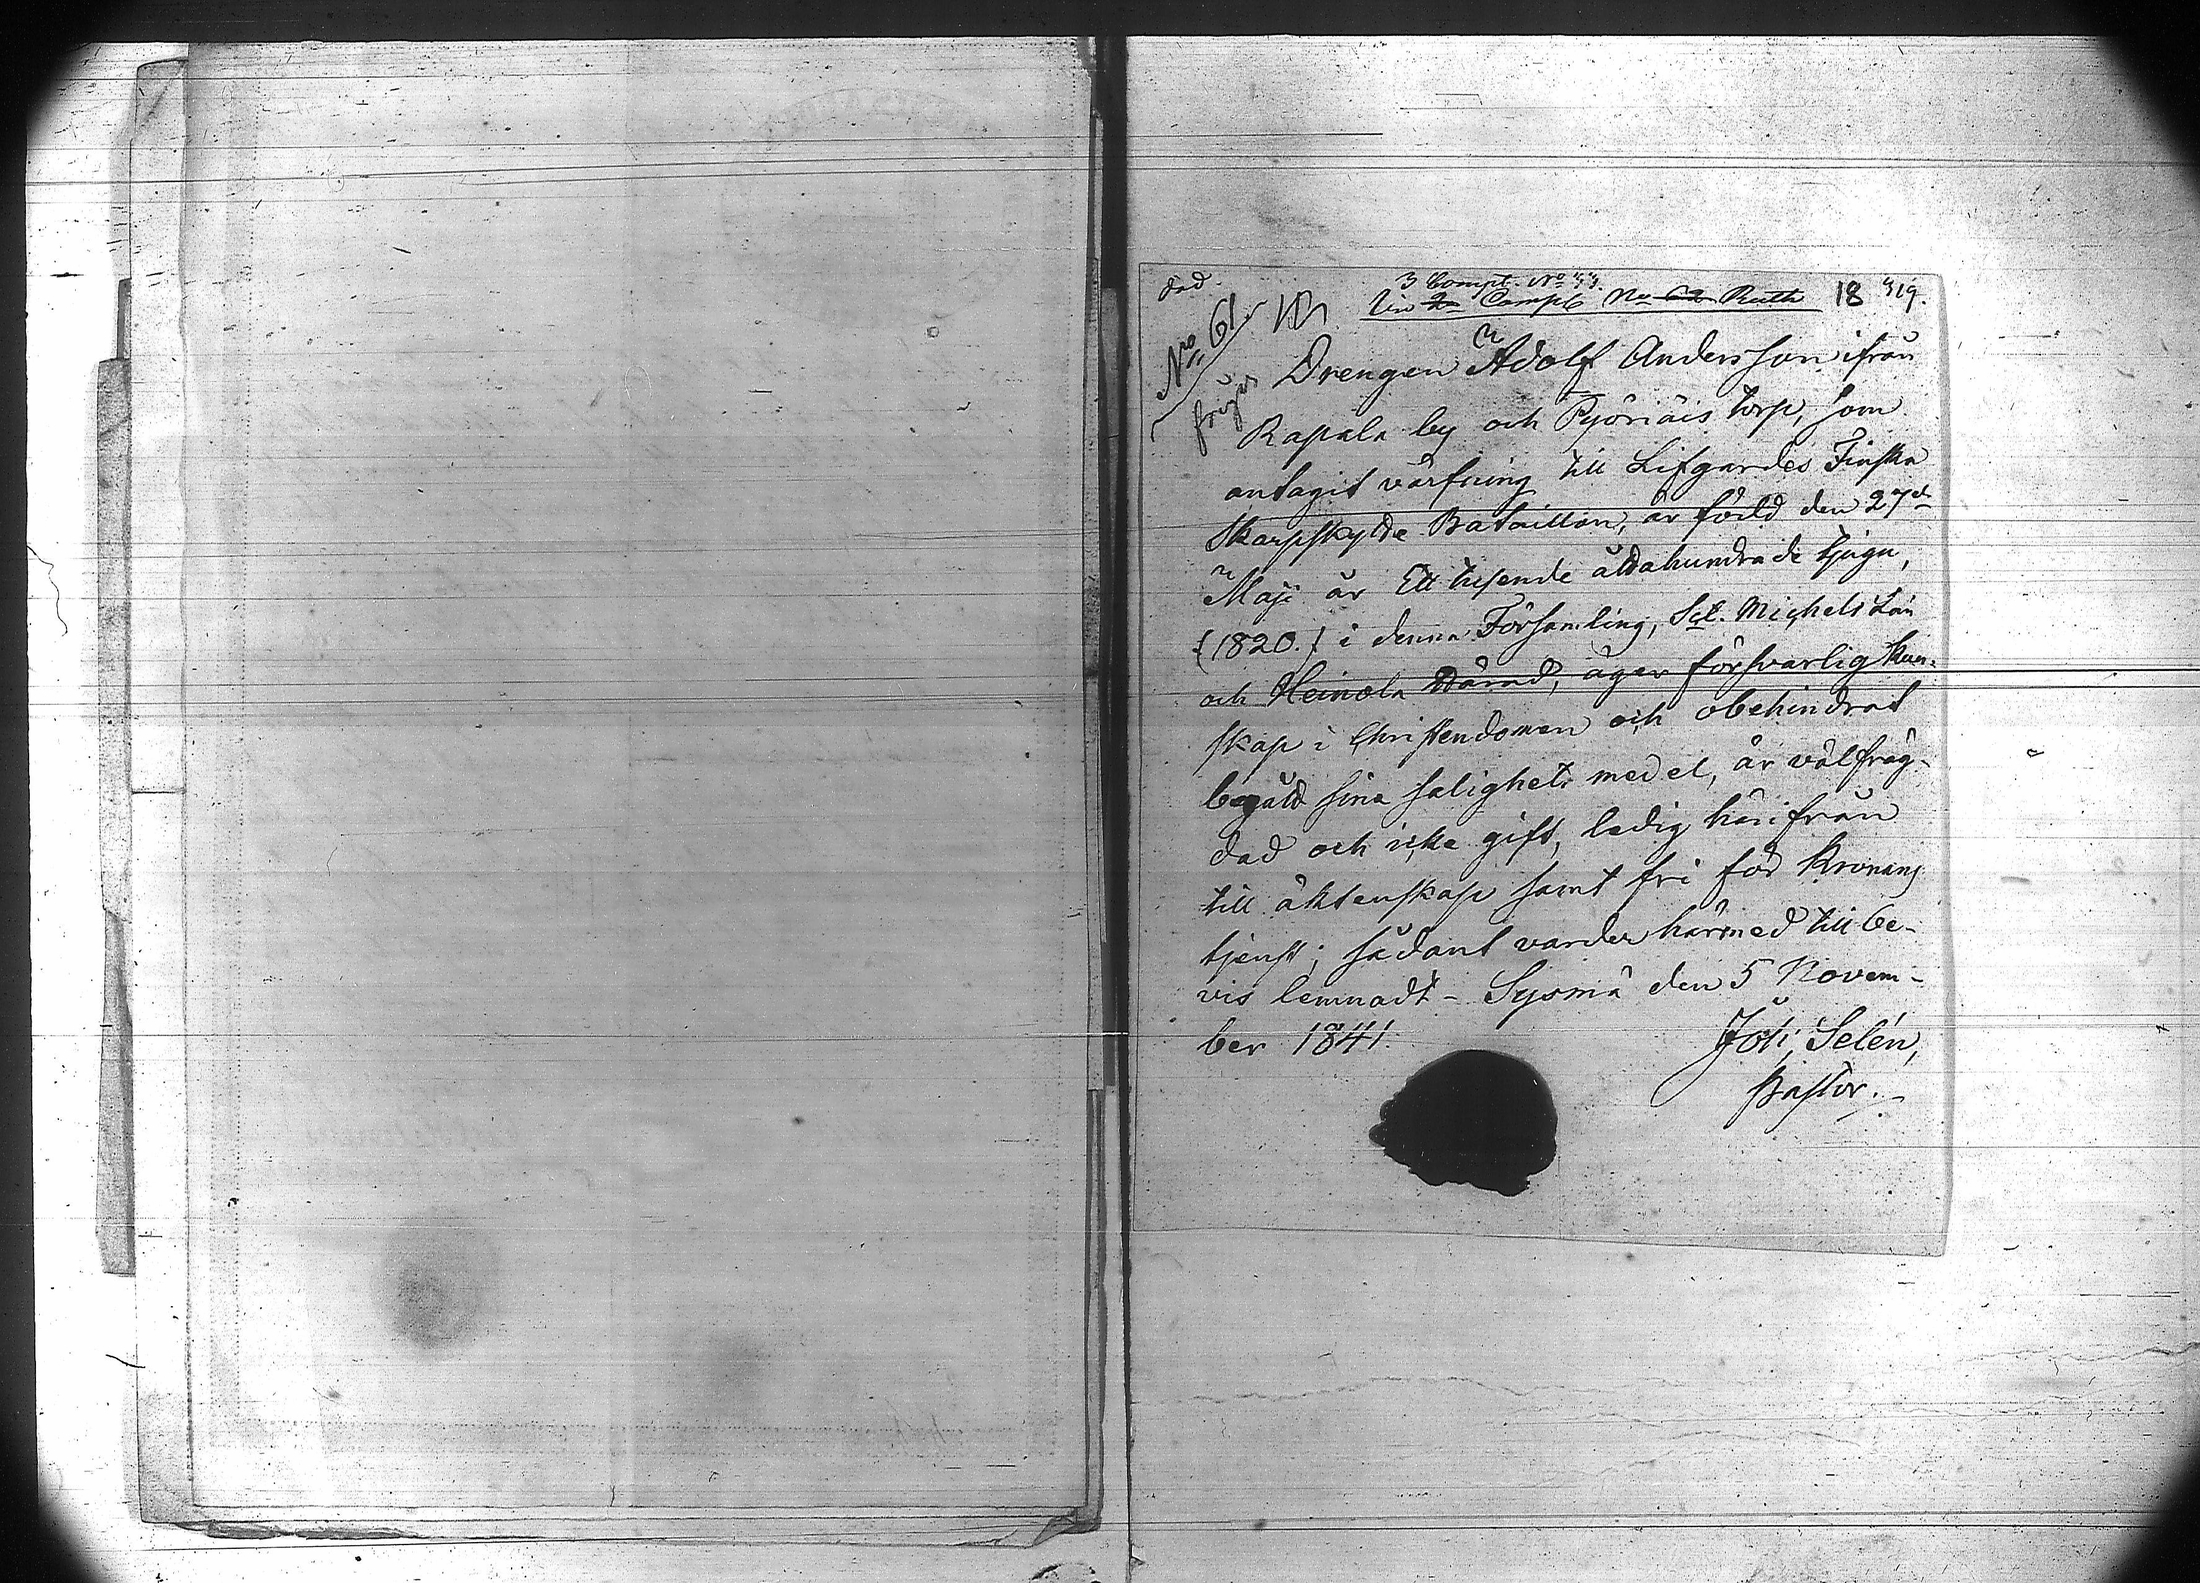 död.
3 Compt. No 33.
Liv 2a Comp6 No 62 Ruth
18 319.
No 61.
Drengen Adolf Andersson ifrån
Rapala by och Pyöriäis torp, som
antagit värfning till Lifgardes Finska
Skarpskytte Bataillon, är född den 27de
Maji år Ett tusende åttahundrade tjugu,
(1820.) i denna Församling, Sct. Michels Län
och Heinola Härad, äger försvarlig kun-
skap i Christendomen och obehindrat
begått sina salighets medel, är välfräg-
dad och icke gift, ledig härifrån
till äktenskap samt fri för Kronans
tjenst; sådant varder härmed till be-
vis lemnadt - Sysmä den 5 Novem-
ber 1841.
Joh. Selén,
Pastor.